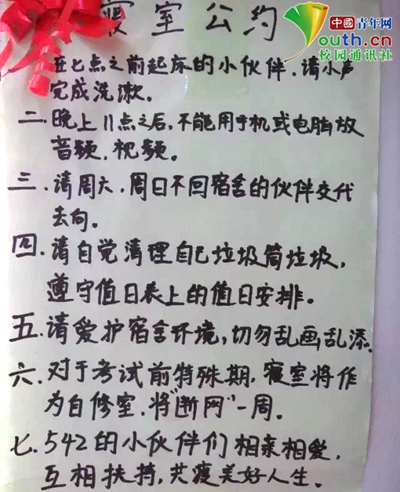 寝室公约
中國青年网
youth.cn
校园通讯社
在七点之前起床的小伙伴,请小声
完成洗漱。
二.晚上11点之后,不能用手机或电脑放
音频,视频。
三.请周六,周日不回宿舍的伙伴交代
去向。
四.请自觉清理自己垃圾筒垃圾,
遵守值日表上的值日安排。
五.请爱护宿舍环境,切勿乱画乱添。
六.对于考试前特殊期,寝室将作
为自修室,将"断网"一周。
七.542的小伙伴们相亲相爱,
互相扶持,共度美好人生。